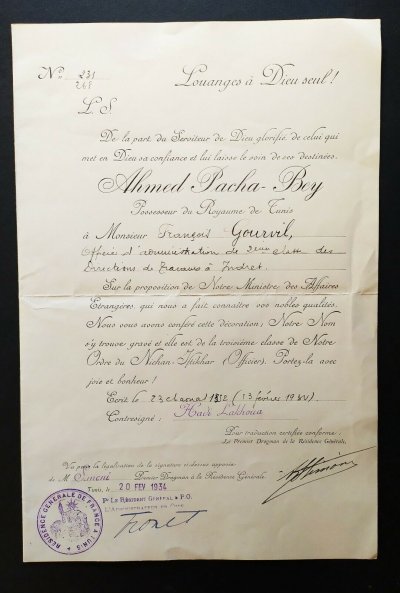 N° 231
268
Louanges à Dieu seul!
L. S.
De la part du Serviteur de Dieu glorifié de celui qui
met en Dieu sa confiance et lui laisse le soin de ses destinées.
Ahmed Pacha-Bey
Possesseur du Royaume de Tunis
à Monsieur François Gourvil,
Officier d'administration de 2ème classe des
Directions de travaux à Indret.
Sur la proposition de Notre Ministre des Affaires
Etrangères, qui nous a fait connaître vos nobles qualités,
Nous vous avons conféré cette décoration; Notre Nom
s'y trouve gravé et elle est de la troisième classe de Notre
Ordre du Nichan-Iftikhar (Officier). Portez-la avec
joie et bonheur!
Ecrit le 23 chaoual 1352 (13 février 1934)
Contresigné: Hadi Lakhoua
Pour traduction certifiée conforme:
Le Premier Drogman de la Résidence Générale,
Vu pour la légalisation de la signature ci-dessus apposée
de M. Premier Drogman à la Résidence Générale
Tunis, le 20 FEV 1934
Pr Le Résident Général & P.O.
RÉSIDENCE GÉNÉRALE DE FRANCE À TUNIS